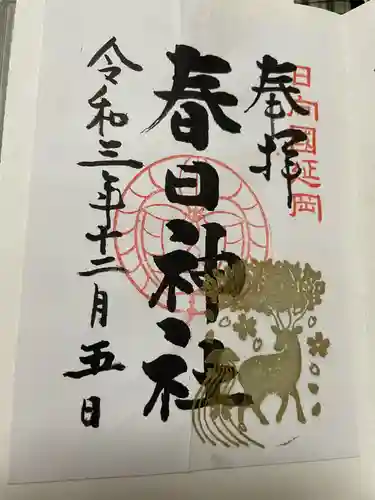 奉拝
日向國延岡
春日神社
令和三年十二月五日